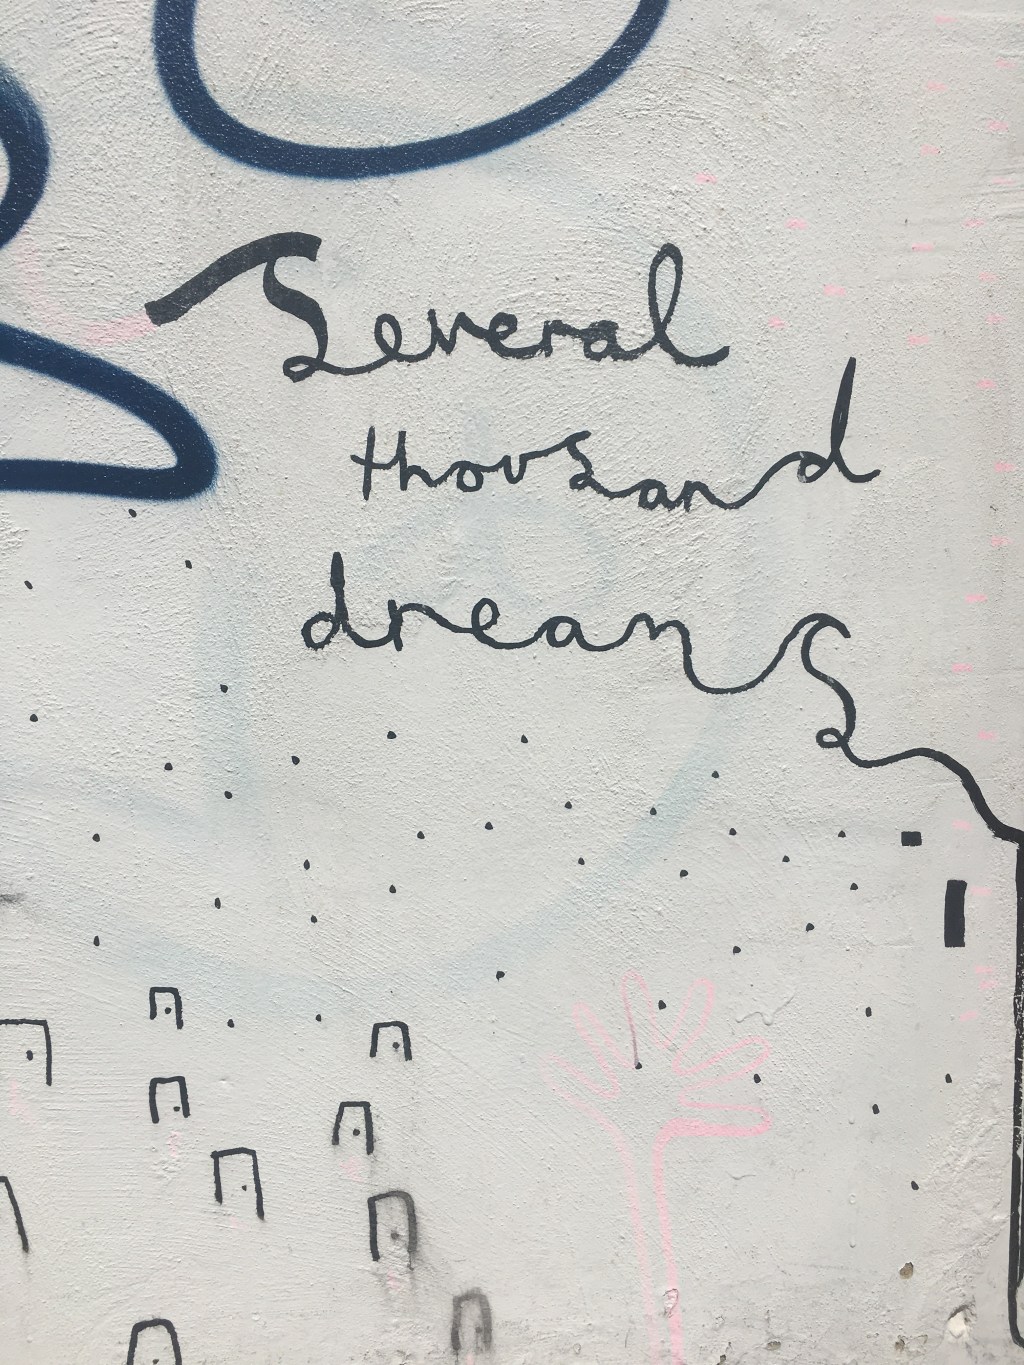 Several
thousand
dreams